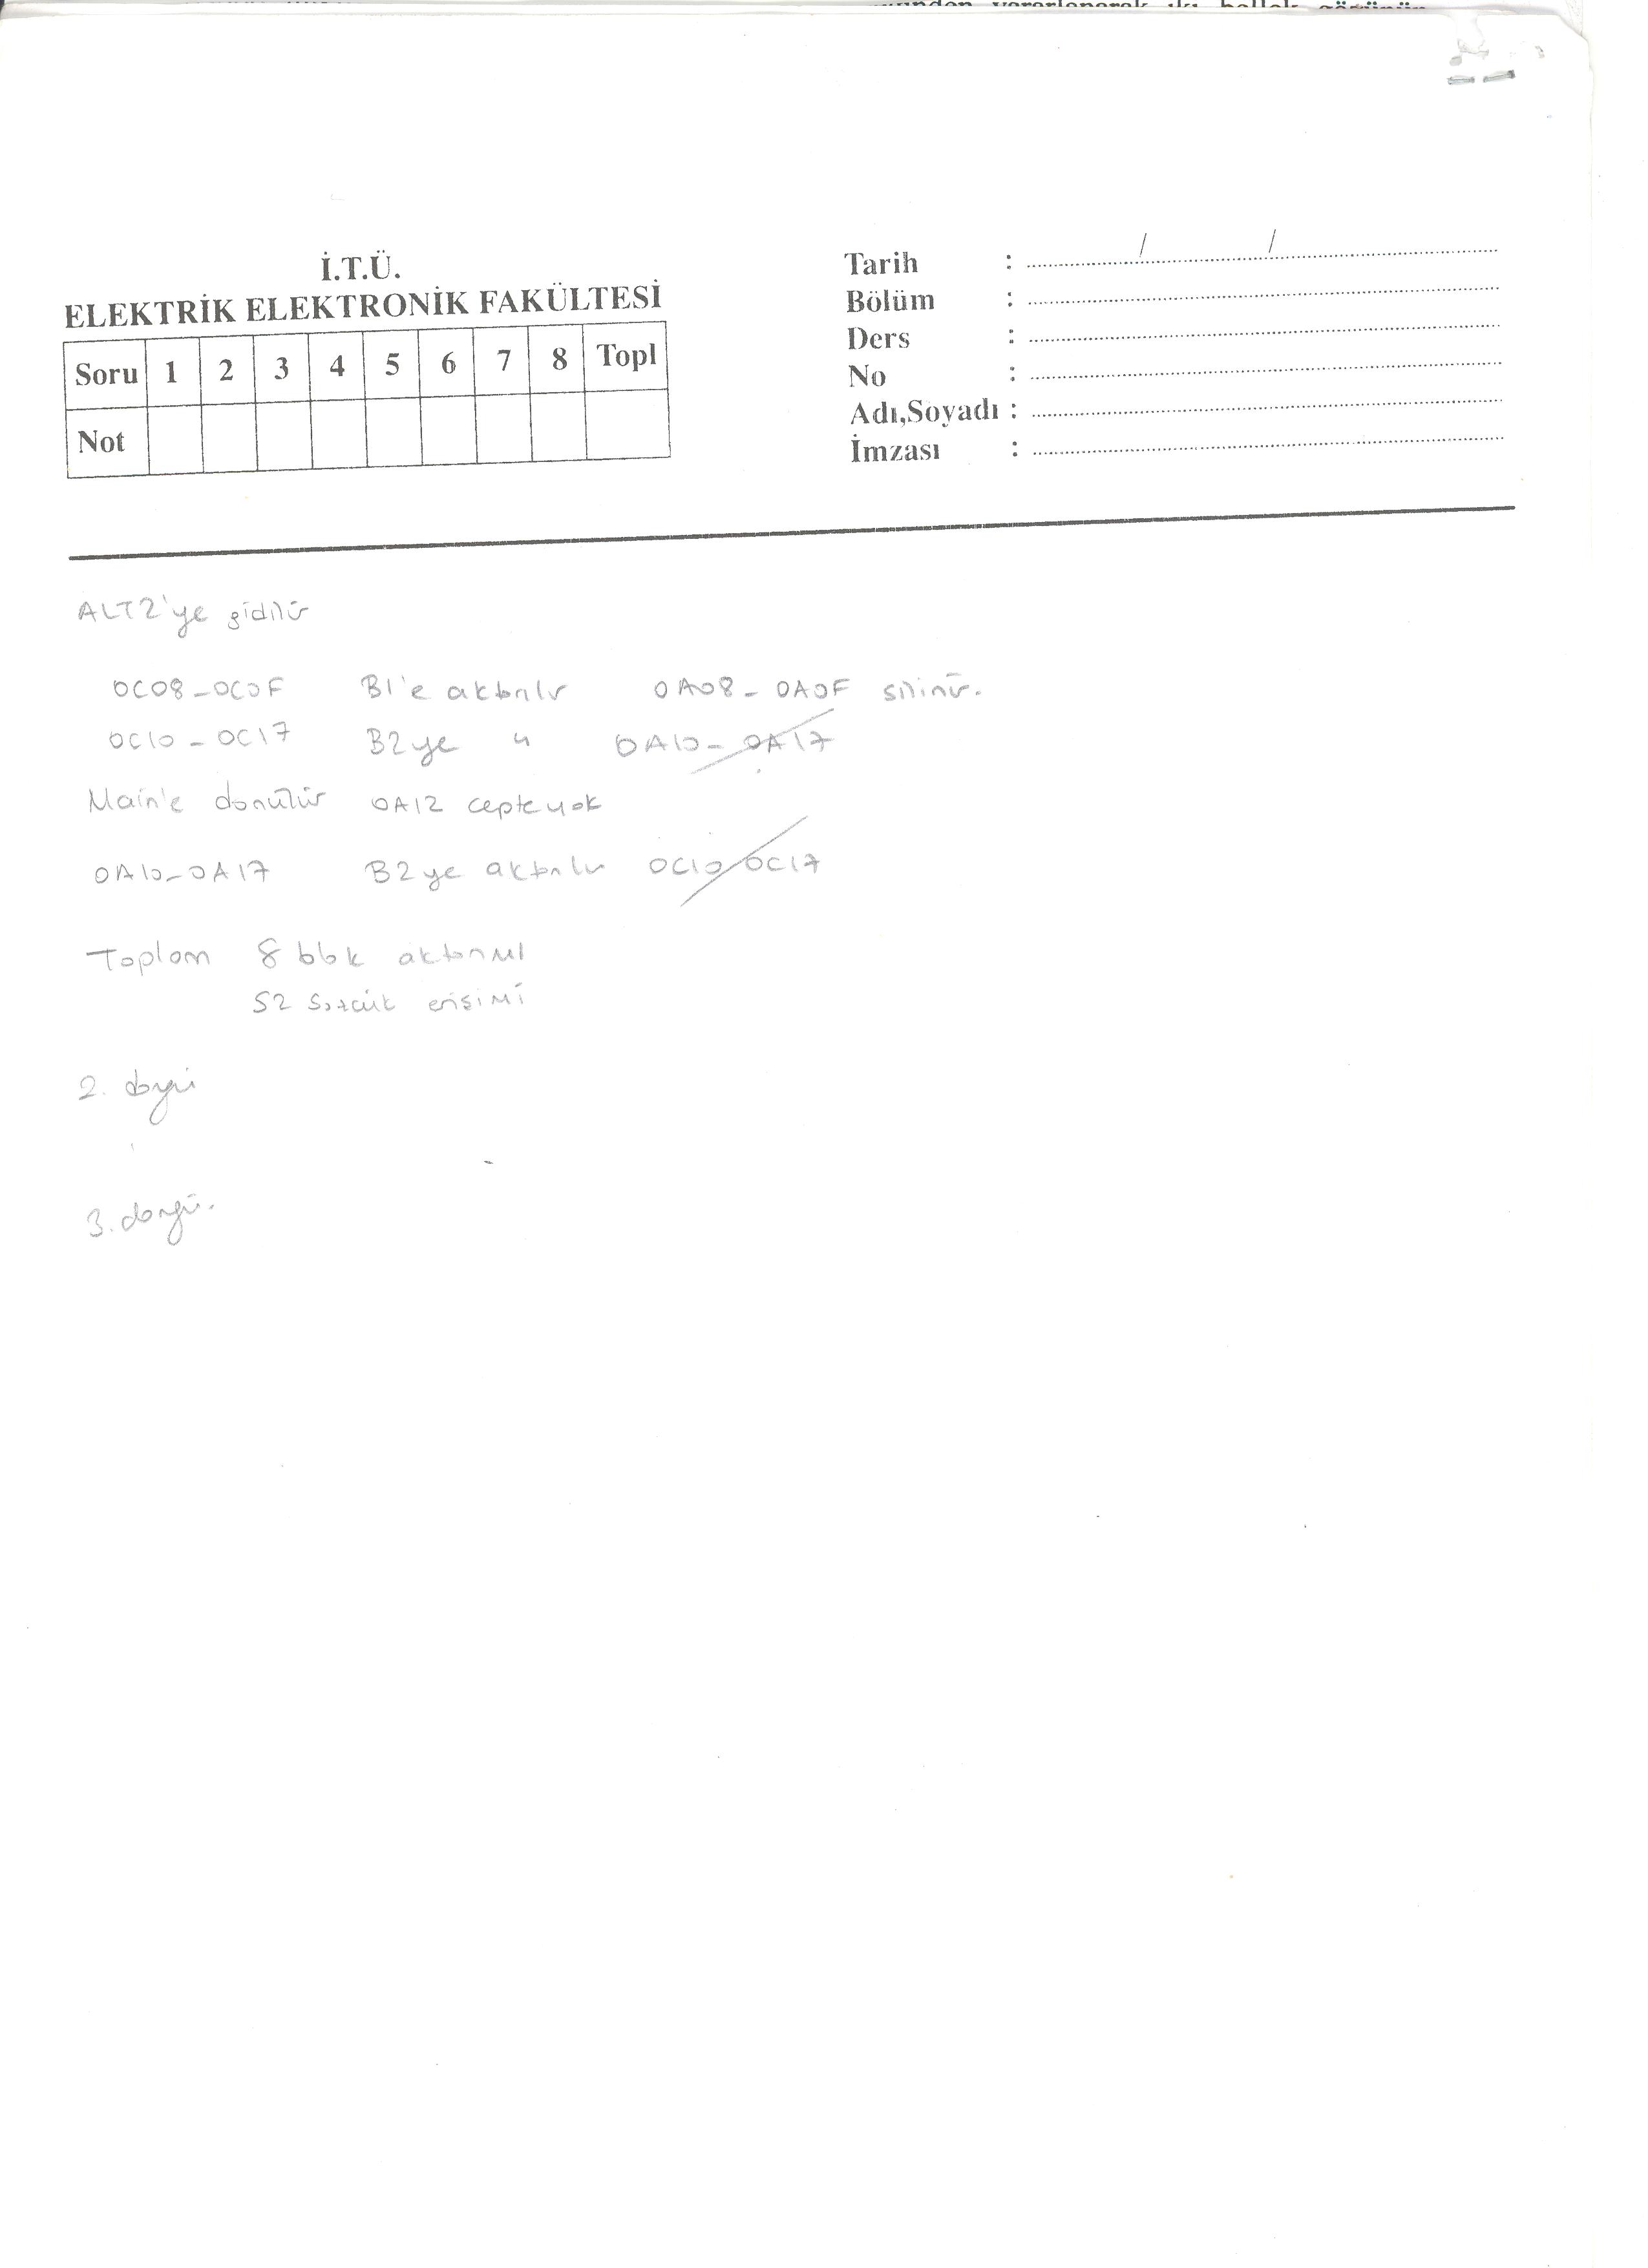 yararlanarak iki bellek
İ.T.Ü.
ELEKTRİK ELEKTRONİK FAKÜLTESİ
Soru 1 2 3 4 5 6 7 8 Topl
Not
Tarih : / /
Bölüm :
Ders :
No :
Adı,Soyadı :
İmzası :
ALT2'ye gidilir
0C08-0C0F B1'e aktarılır 0A08-0A0F silinir.
0C10-0C17 B2ye " 0A10-0A17
Main'e dönülür 0A12 cepte yok
0A10-0A17 B2ye aktarılır 0C10 0C17
Toplam 8 blok aktarımı
52 sözcük erişimi
2. döngü
3. döngü.